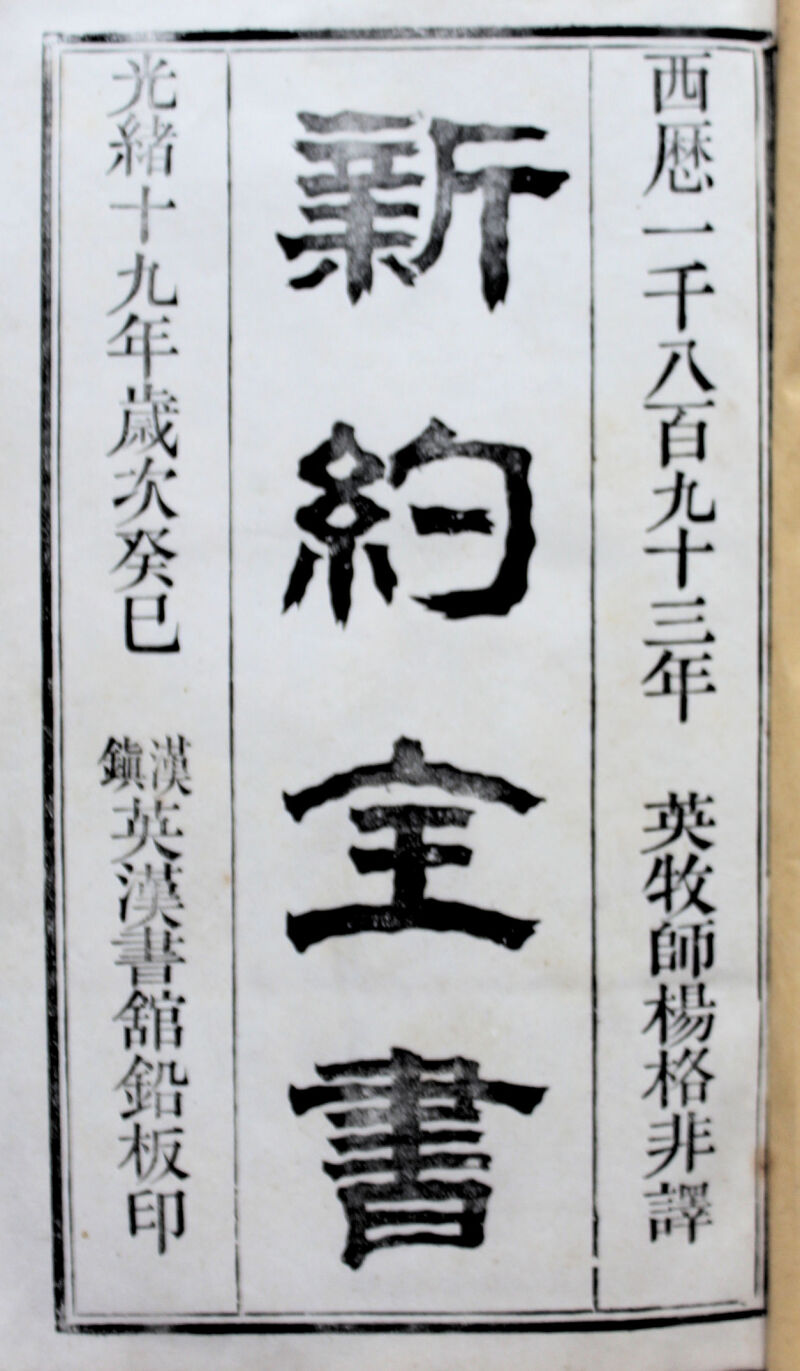 西歷一千八百九十三年 英牧師楊格非譯
新約全書
光緒十九年歲次癸巳 漢鎮英漢書館鉛板印